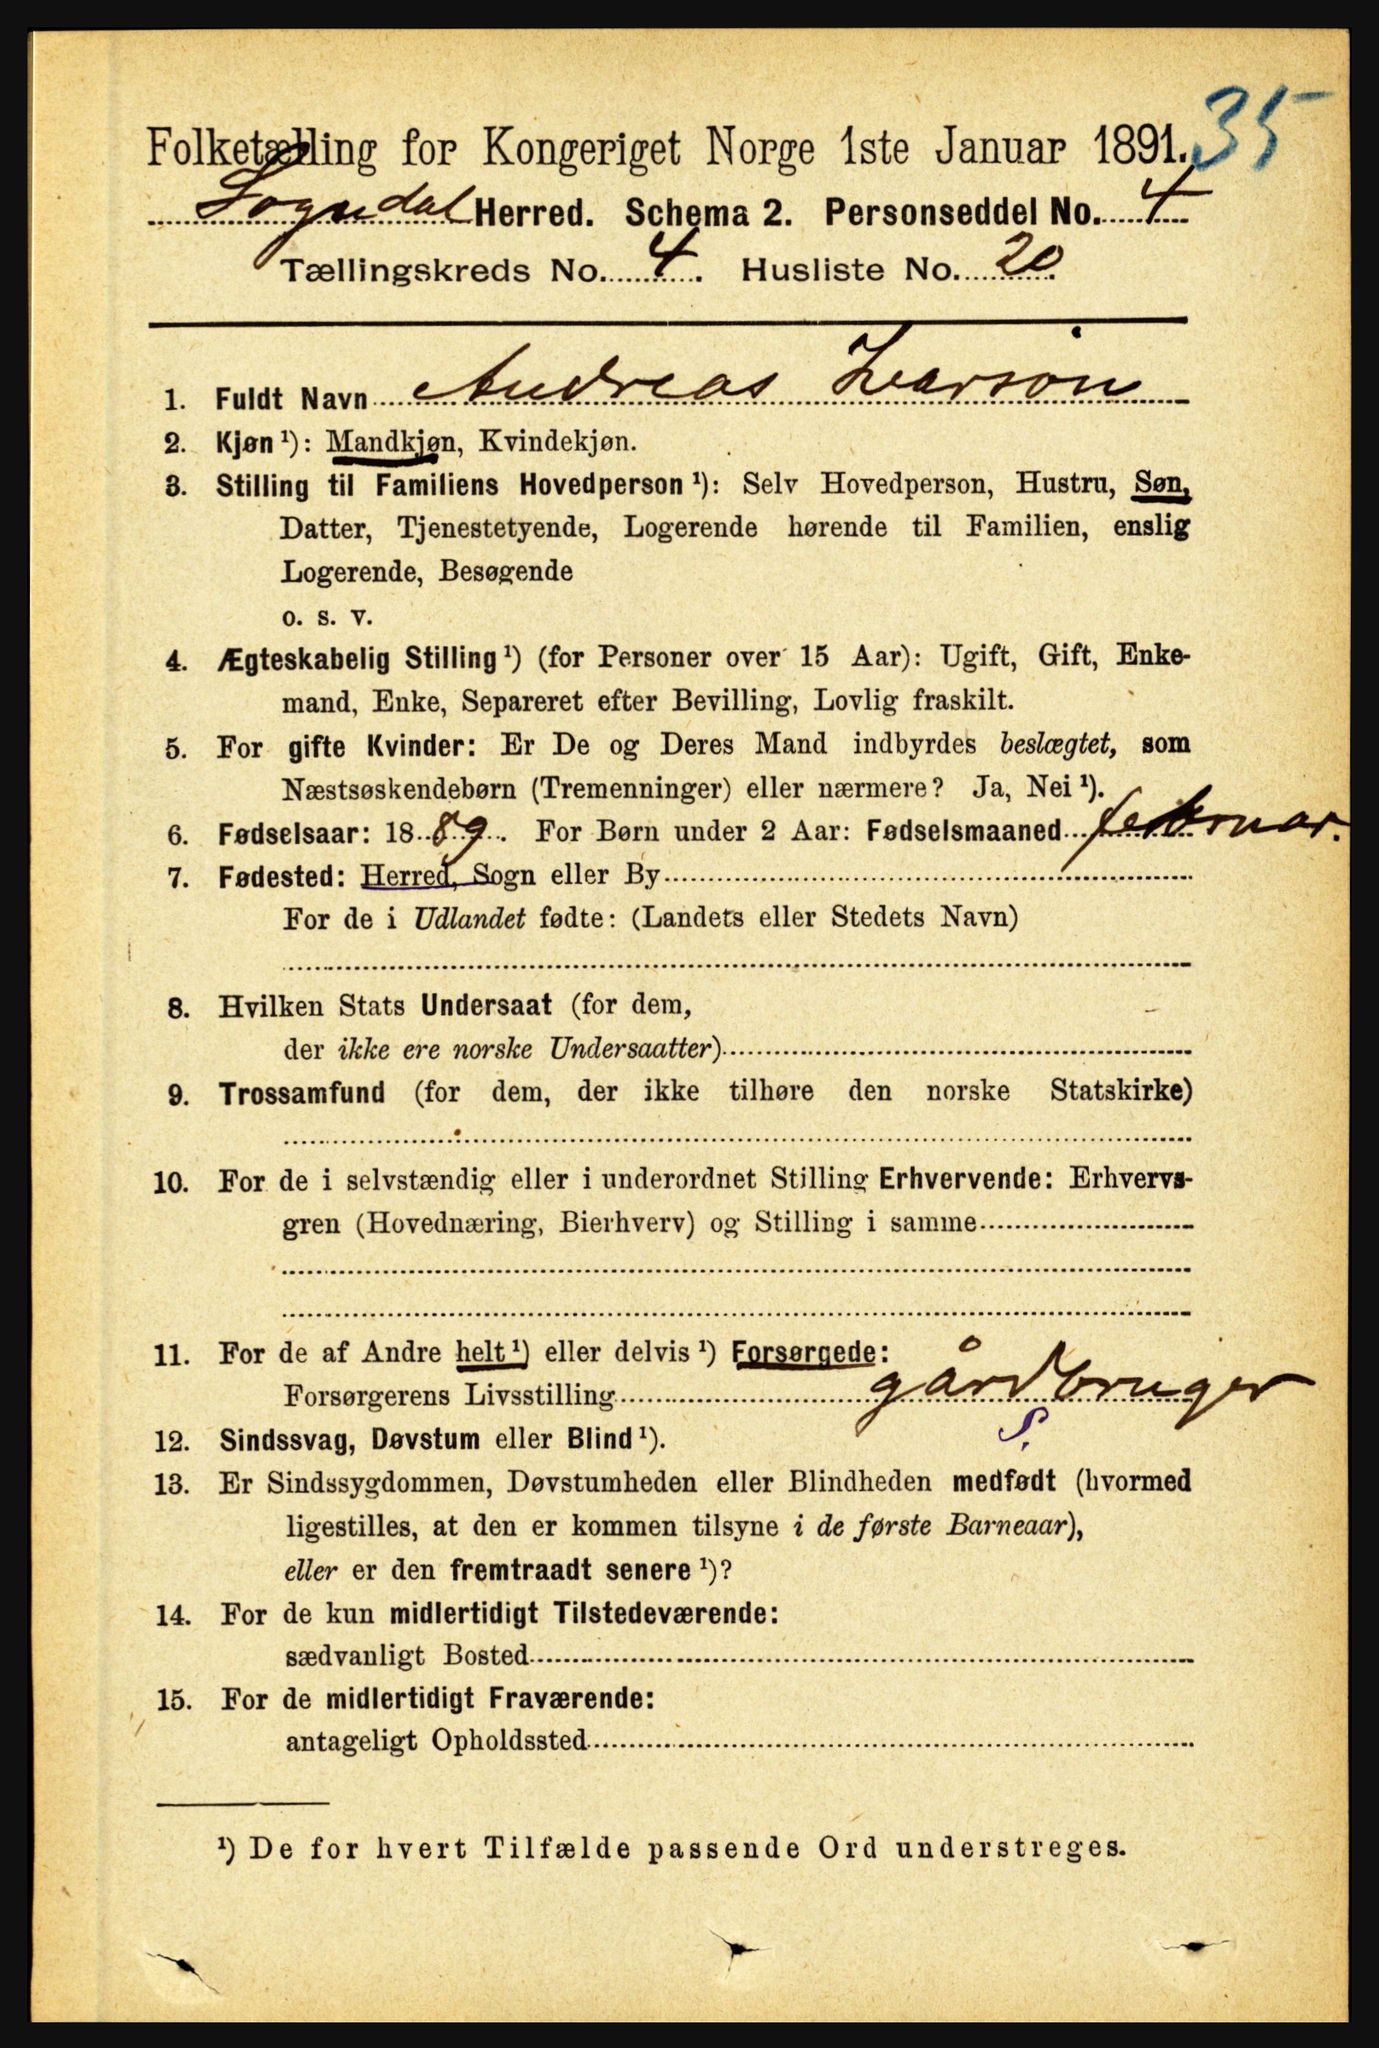 35
Folketælling for Kongeriget Norge 1ste Januar 1891.
Sogndal Herred. Schema 2. Personseddel No. 4
Tællingskreds No. 4. Husliste No. 20.
1. Fuldt Navn Andreas Ivarson
2. Kjøn ¹): Mandkjøn, Kvindekjøn.
3. Stilling til Familiens Hovedperson ¹): Selv Hovedperson, Hustru, Søn,
Datter, Tjenestetyende, Logerende hørende til Familien, enslig
Logerende, Besøgende
o. s. v.
4. Ægteskabelig Stilling ¹) (for Personer over 15 Aar): Ugift, Gift, Enke-
mand, Enke, Separeret efter Bevilling, Lovlig fraskilt.
5. For gifte Kvinder: Er De og Deres Mand indbyrdes beslægtet, som
Næstsøskendebørn (Tremenninger) eller nærmere? Ja, Nei ¹).
6. Fødselsaar: 1889. For Børn under 2 Aar: Fødselsmaaned februar.
7. Fødested: Herred, Sogn eller By
For de i Udlandet fødte: (Landets eller Stedets Navn)
8. Hvilken Stats Undersaat (for dem,
der ikke ere norske Undersaatter)
9. Trossamfund (for dem, der ikke tilhøre den norske Statskirke)
10. For de i selvstændig eller i underordnet Stilling Erhvervende: Erhvervs-
gren (Hovednæring, Bierhverv) og Stilling i samme
11. For de af Andre helt ¹) eller delvis ¹) Forsørgede:
Forsørgerens Livsstilling gårdbruger
S.
12. Sindssvag, Døvstum eller Blind ¹).
13. Er Sindssygdommen, Døvstumheden eller Blindheden medfødt (hvormed
ligestilles, at den er kommen tilsyne i de første Barneaar),
eller er den fremtraadt senere ¹)?
14. For de kun midlertidigt Tilstedeværende:
sædvanligt Bosted
15. For de midlertidigt Fraværende:
antageligt Opholdssted
¹) De for hvert Tilfælde passende Ord understreges.